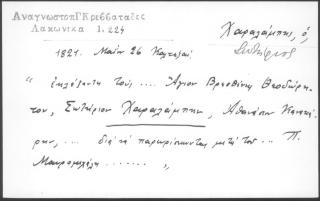 ΑναγνωστοπΓΚρεββαταδες
Λακωνικα 1. 224
Χαραλάμπης, ὁ,
Σωτήριος
1821. Μαΐου 26 Καλτεζαί
" ἐκλέξαντες τούς .... Ἅγιον Βρεσθένης Θεοδώρη-
τον, Σωτήριον Χαραλάμπην, Ἀθανάσιον Κανακά-
ρην, .... διὰ νὰ παρευρίσκωνται μετὰ τοῦ ... Π.
Μαυρομιχάλη ....... "